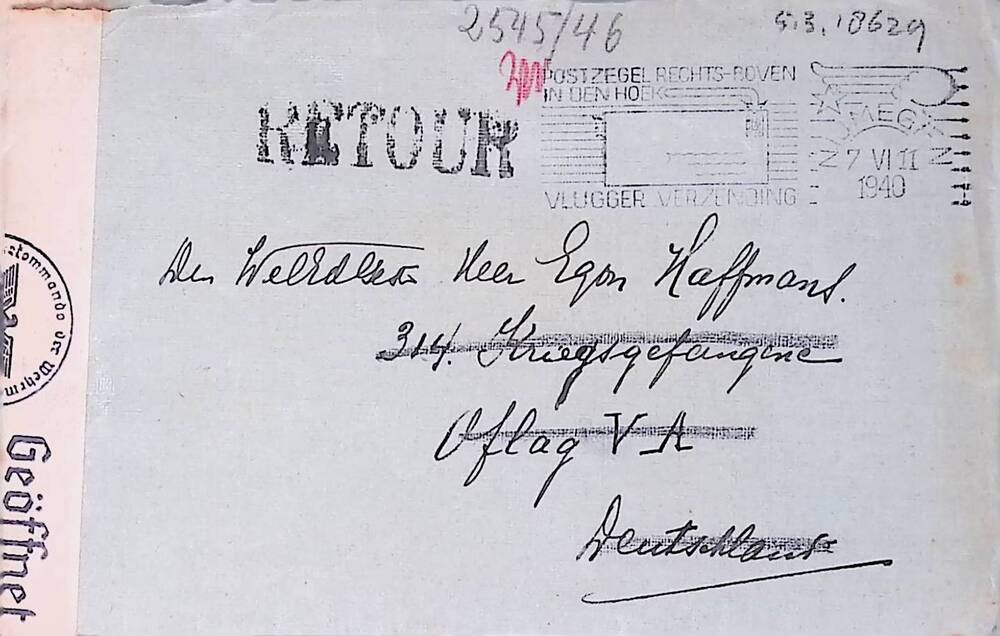 2545/46
S.3.18629
POSTZEGEL RECHTS-BOVEN
IN DEN HOEK
VLUGGER VERZENDING
NIJMEGEN
7 VI 11
1940
RETOUR
Den WelEdlGestr Heer Egon Haffmans.
314. Kriegsgefangene
Oflag V A
Deutschland
kommando der Wehrm
Geöffnet